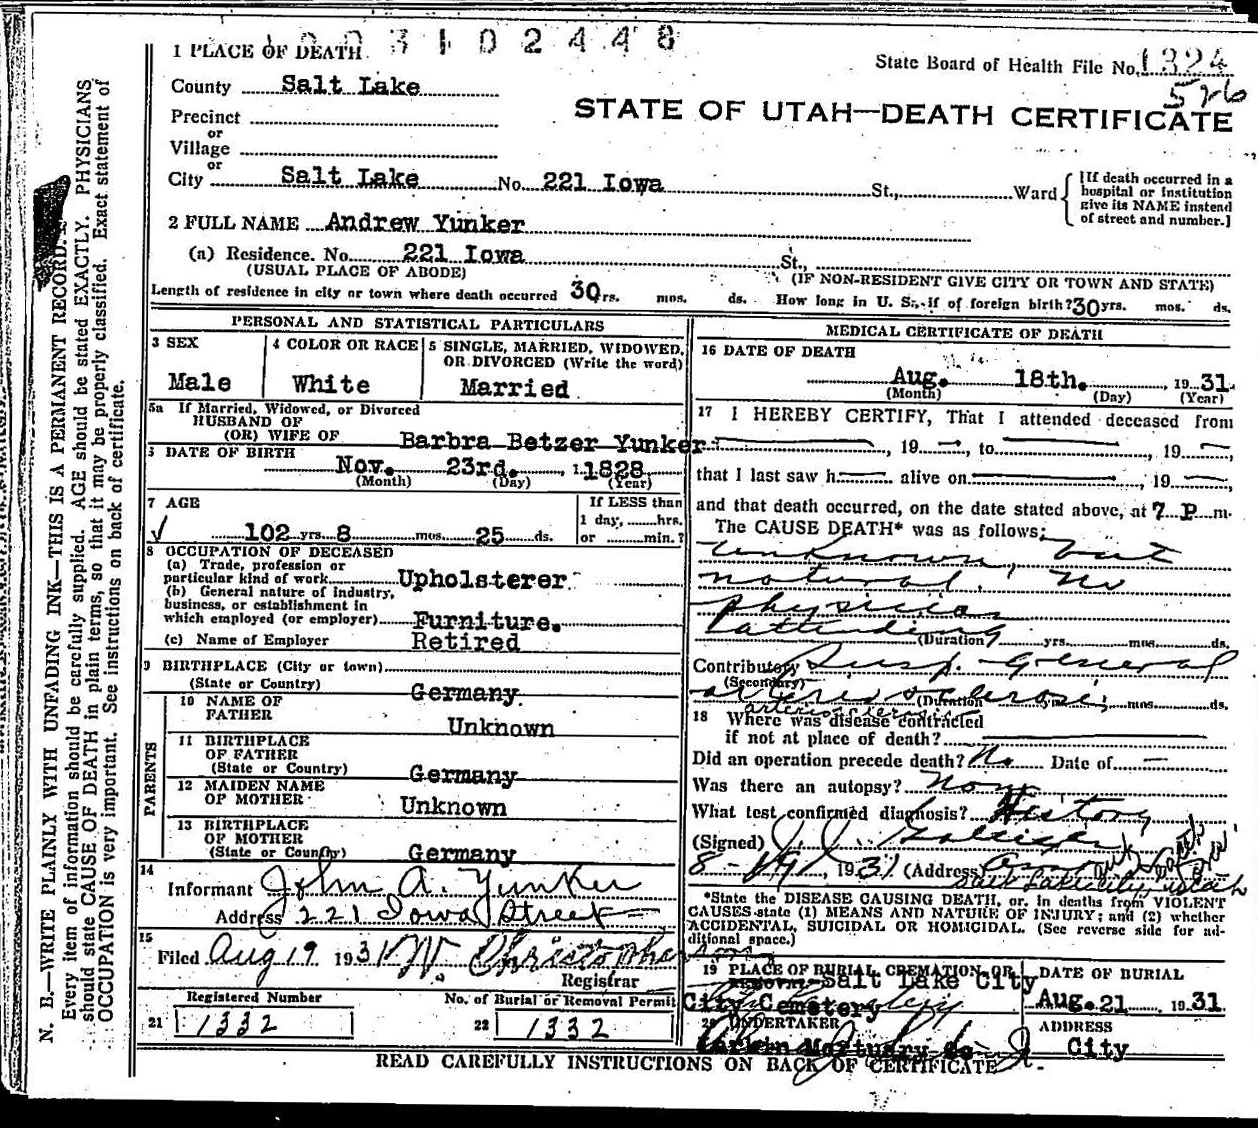 1003102448
1 PLACE OF DEATH
State Board of Health File No. 1324
526
County Salt Lake
STATE OF UTAH—DEATH CERTIFICATE
Precinct
or
Village
or
City Salt Lake No. 221 Iowa St., Ward
[If death occurred in a hospital or institution give its NAME instead of street and number.]
2 FULL NAME Andrew Yunker
(a) Residence. No. 221 Iowa St.,
(USUAL PLACE OF ABODE) (IF NON-RESIDENT GIVE CITY OR TOWN AND STATE)
Length of residence in city or town where death occurred 30 yrs. mos. ds. How long in U. S., if of foreign birth? 30 yrs. mos. ds.
PERSONAL AND STATISTICAL PARTICULARS
3 SEX
Male
4 COLOR OR RACE
White
5 SINGLE, MARRIED, WIDOWED, OR DIVORCED (Write the word)
Married
5a If Married, Widowed, or Divorced
HUSBAND OF
(OR) WIFE OF Barbra Betzer Yunker
6 DATE OF BIRTH
Nov. 23rd. 1828
(Month) (Day) (Year)
7 AGE
102 yrs. 8 mos. 25 ds.
If LESS than
1 day, hrs.
or min.?
8 OCCUPATION OF DECEASED
(a) Trade, profession or
particular kind of work Upholsterer
(b) General nature of industry,
business, or establishment in
which employed (or employer) Furniture.
(c) Name of Employer Retired
9 BIRTHPLACE (City or town)
(State or Country) Germany
PARENTS
10 NAME OF
FATHER Unknown
11 BIRTHPLACE
OF FATHER
(State or Country) Germany
12 MAIDEN NAME
OF MOTHER Unknown
13 BIRTHPLACE
OF MOTHER
(State or Country) Germany
14
Informant John A. Yunker
Address 221 Iowa Street
15
Filed Aug 19 1931 W Christopherson
Registrar
Registered Number
21 1332
No. of Burial or Removal Permit
22 1332
MEDICAL CERTIFICATE OF DEATH
16 DATE OF DEATH
Aug. 18th. , 1931
(Month) (Day) (Year)
17 I HEREBY CERTIFY, That I attended deceased from
, 19 , to , 19 ,
that I last saw h alive on , 19 ,
and that death occurred, on the date stated above, at 7 P m.
The CAUSE DEATH* was as follows:
Unknown, but
natural. No
physician
attending
(Duration) yrs. mos. ds.
Contributory Susp. General
(Secondary)
arterio sclerosis
(Duration yrs. mos. ds.
18 Where was disease contracted
if not at place of death?
Did an operation precede death? No Date of —
Was there an autopsy? None
What test confirmed diagnosis? History
(Signed)
8-19, 1931 (Address)
Salt Lake City, Utah
*State the DISEASE CAUSING DEATH, or, in deaths from VIOLENT
CAUSES state (1) MEANS AND NATURE OF INJURY; and (2) whether
ACCIDENTAL, SUICIDAL OR HOMICIDAL. (See reverse side for additional space.)
19 PLACE OF BURIAL, CREMATION, OR
REMOVAL Salt Lake City
City Cemetery
DATE OF BURIAL
Aug. 21 , 1931
20 UNDERTAKER
Larkin Mortuary Co
ADDRESS
City
READ CAREFULLY INSTRUCTIONS ON BACK OF CERTIFICATE
N. B.—WRITE PLAINLY WITH UNFADING INK—THIS IS A PERMANENT RECORD.
Every item of information should be carefully supplied. AGE should be stated EXACTLY. PHYSICIANS
should state CAUSE OF DEATH in plain terms, so that it may be properly classified. Exact statement of
OCCUPATION is very important. See instructions on back of certificate.